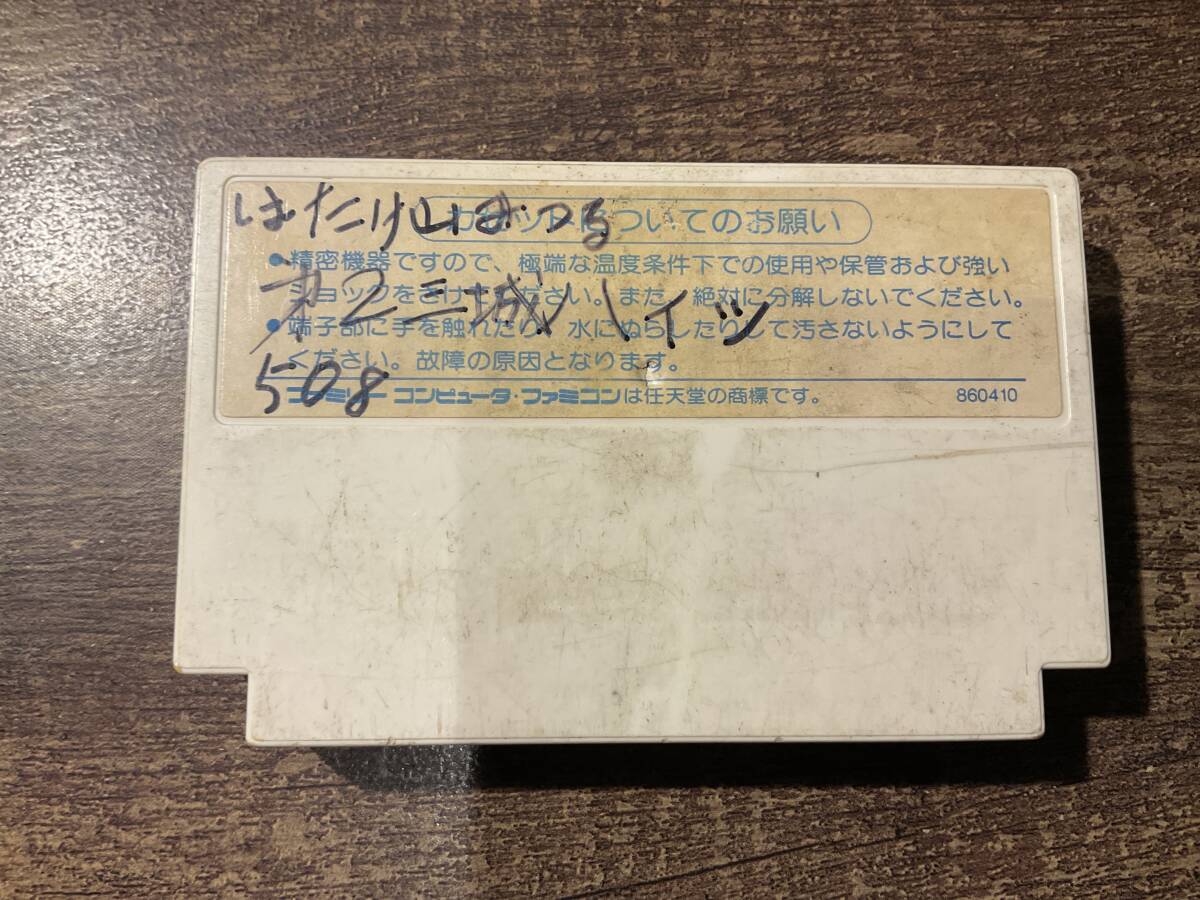 はたけ山まつる
カセットについてのお願い
●精密機器ですので、極端な温度条件下での使用や保管および強い
才2三城ハイツ
ショックをさけてください。また、絶対に分解しないでください。
●端子部に手を触れたり、水にぬらしたりして汚さないようにして
ください。故障の原因となります。
508
ファミリーコンピュータ・ファミコンは任天堂の商標です。
860410